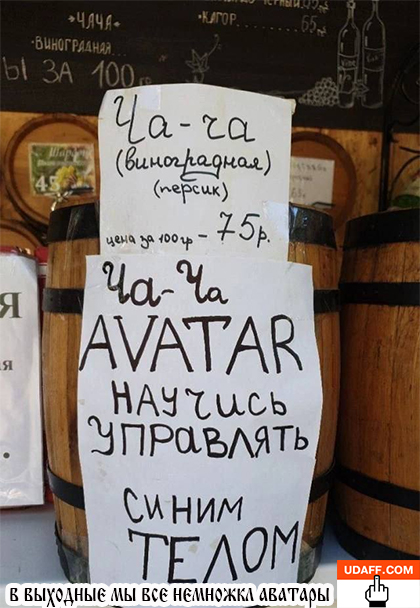 •ЧАЧА
ВИНОГРАДНАЯ
•КАГОР
65
Ы ЗА 100гр
45
Ча-ча
(виноградная)
(персик)
цена за 100гр - 75р.
Ча-Ча
AVATAR
НАУЧИСЬ
УПРАВЛЯТЬ
СИНИМ
ТЕЛОМ
Я
я
UDAFF.COM
В ВЫХОДНЫЕ МЫ ВСЕ НЕМНОЖКА АВАТАРЫ